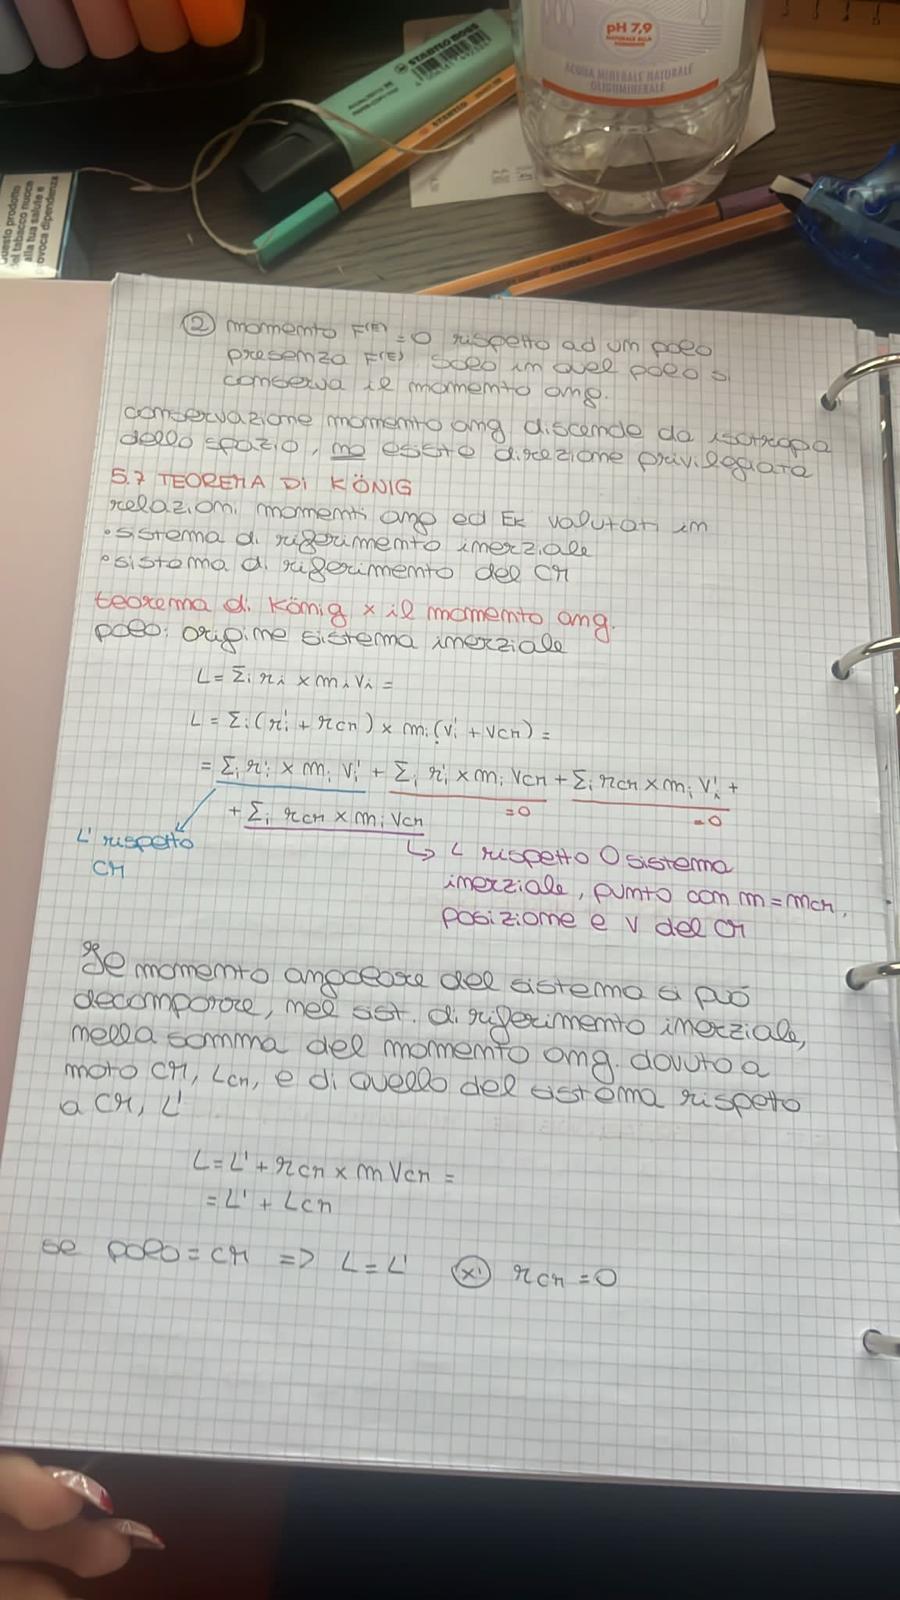 pH 7,9
ACQUA MINERALE NATURALE
OLIGOMINERALE
STABILO BOSS
STABILO
Questo prodotto
del tabacco nuoce
alla tua salute e
provoca dipendenza
② momento F⁽ᴱ⁾=0 rispetto ad un polo
presenza F⁽ᴱ⁾ solo in quel polo si
conserva il momento ang.
conservazione momento ang discende da isotropa
dello spazio, no esiste direzione privilegiata
5.7 TEOREMA DI KÖNIG
relazioni momenti ang ed Ek valutati in
•sistema di riferimento inerziale
•sistema di riferimento del CM
teorema di König x il momento ang.
polo: origine sistema inerziale
L = Σi ri × mi vi =
L = Σi (r'i + rCM) × mi (v'i + vCM) =
= Σi r'i × mi v'i + Σi r'i × mi vCM + Σi rCM × mi v'i +
=0
=0
+ Σi rCM × mi vCM
L' rispetto
CM
↳ L rispetto O sistema
inerziale, punto con m = mCM,
posizione e v del CM
Il momento angolare del sistema si può
decomporre, nel sist. di riferimento inerziale,
nella somma del momento ang. dovuto a
moto CM, LCM, e di quello del sistema rispetto
a CM, L'
L = L' + rCM × m vCM =
= L' + LCM
se polo = CM => L = L' (x') rCM = 0